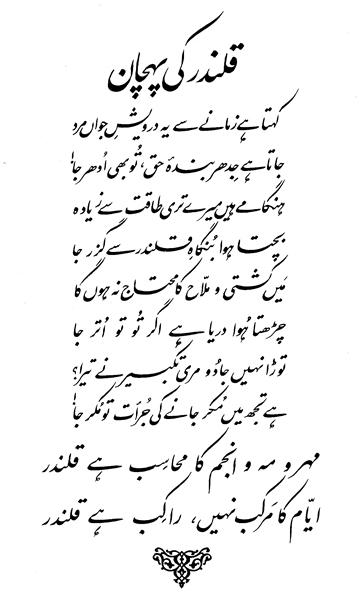 قلندر کی پہچان
کہتا ہے زمانے سے یہ درویشِ جواں مرد
جاتا ہے جدھر بندۂ حق، تُو بھی اُدھر جا!
ہنگامے ہیں میرے تری طاقت سے زیادہ
بچتا ہوا بُنگاہِ قلندر سے گزر جا
مَیں کشتی و ملّاح کا محتاج نہ ہوں گا
چڑھتا ہُوا دریا ہے اگر تُو تو اُتر جا
توڑا نہیں جادو مری تکبیر نے تیرا؟
ہے تجھ میں مُکر جانے کی جُرأت تو مُکر جا!
مہر و مہ و انجم کا محاسِب ہے قلندر
ایّام کا مَرکب نہیں، راکِب ہے قلندر